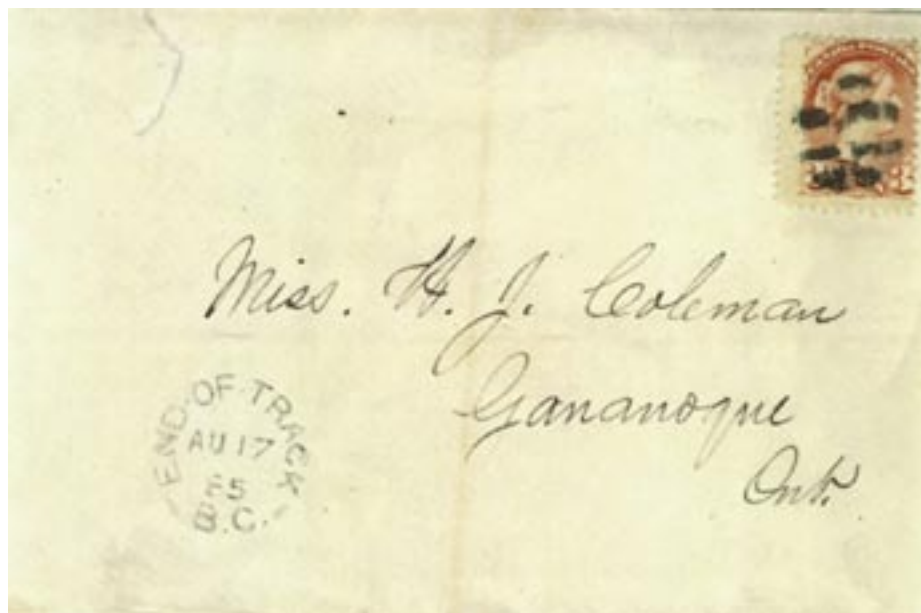 Miss. H. J. Coleman
Gananoque
Ont.
END OF TRACK
AU 17
85
B.C.